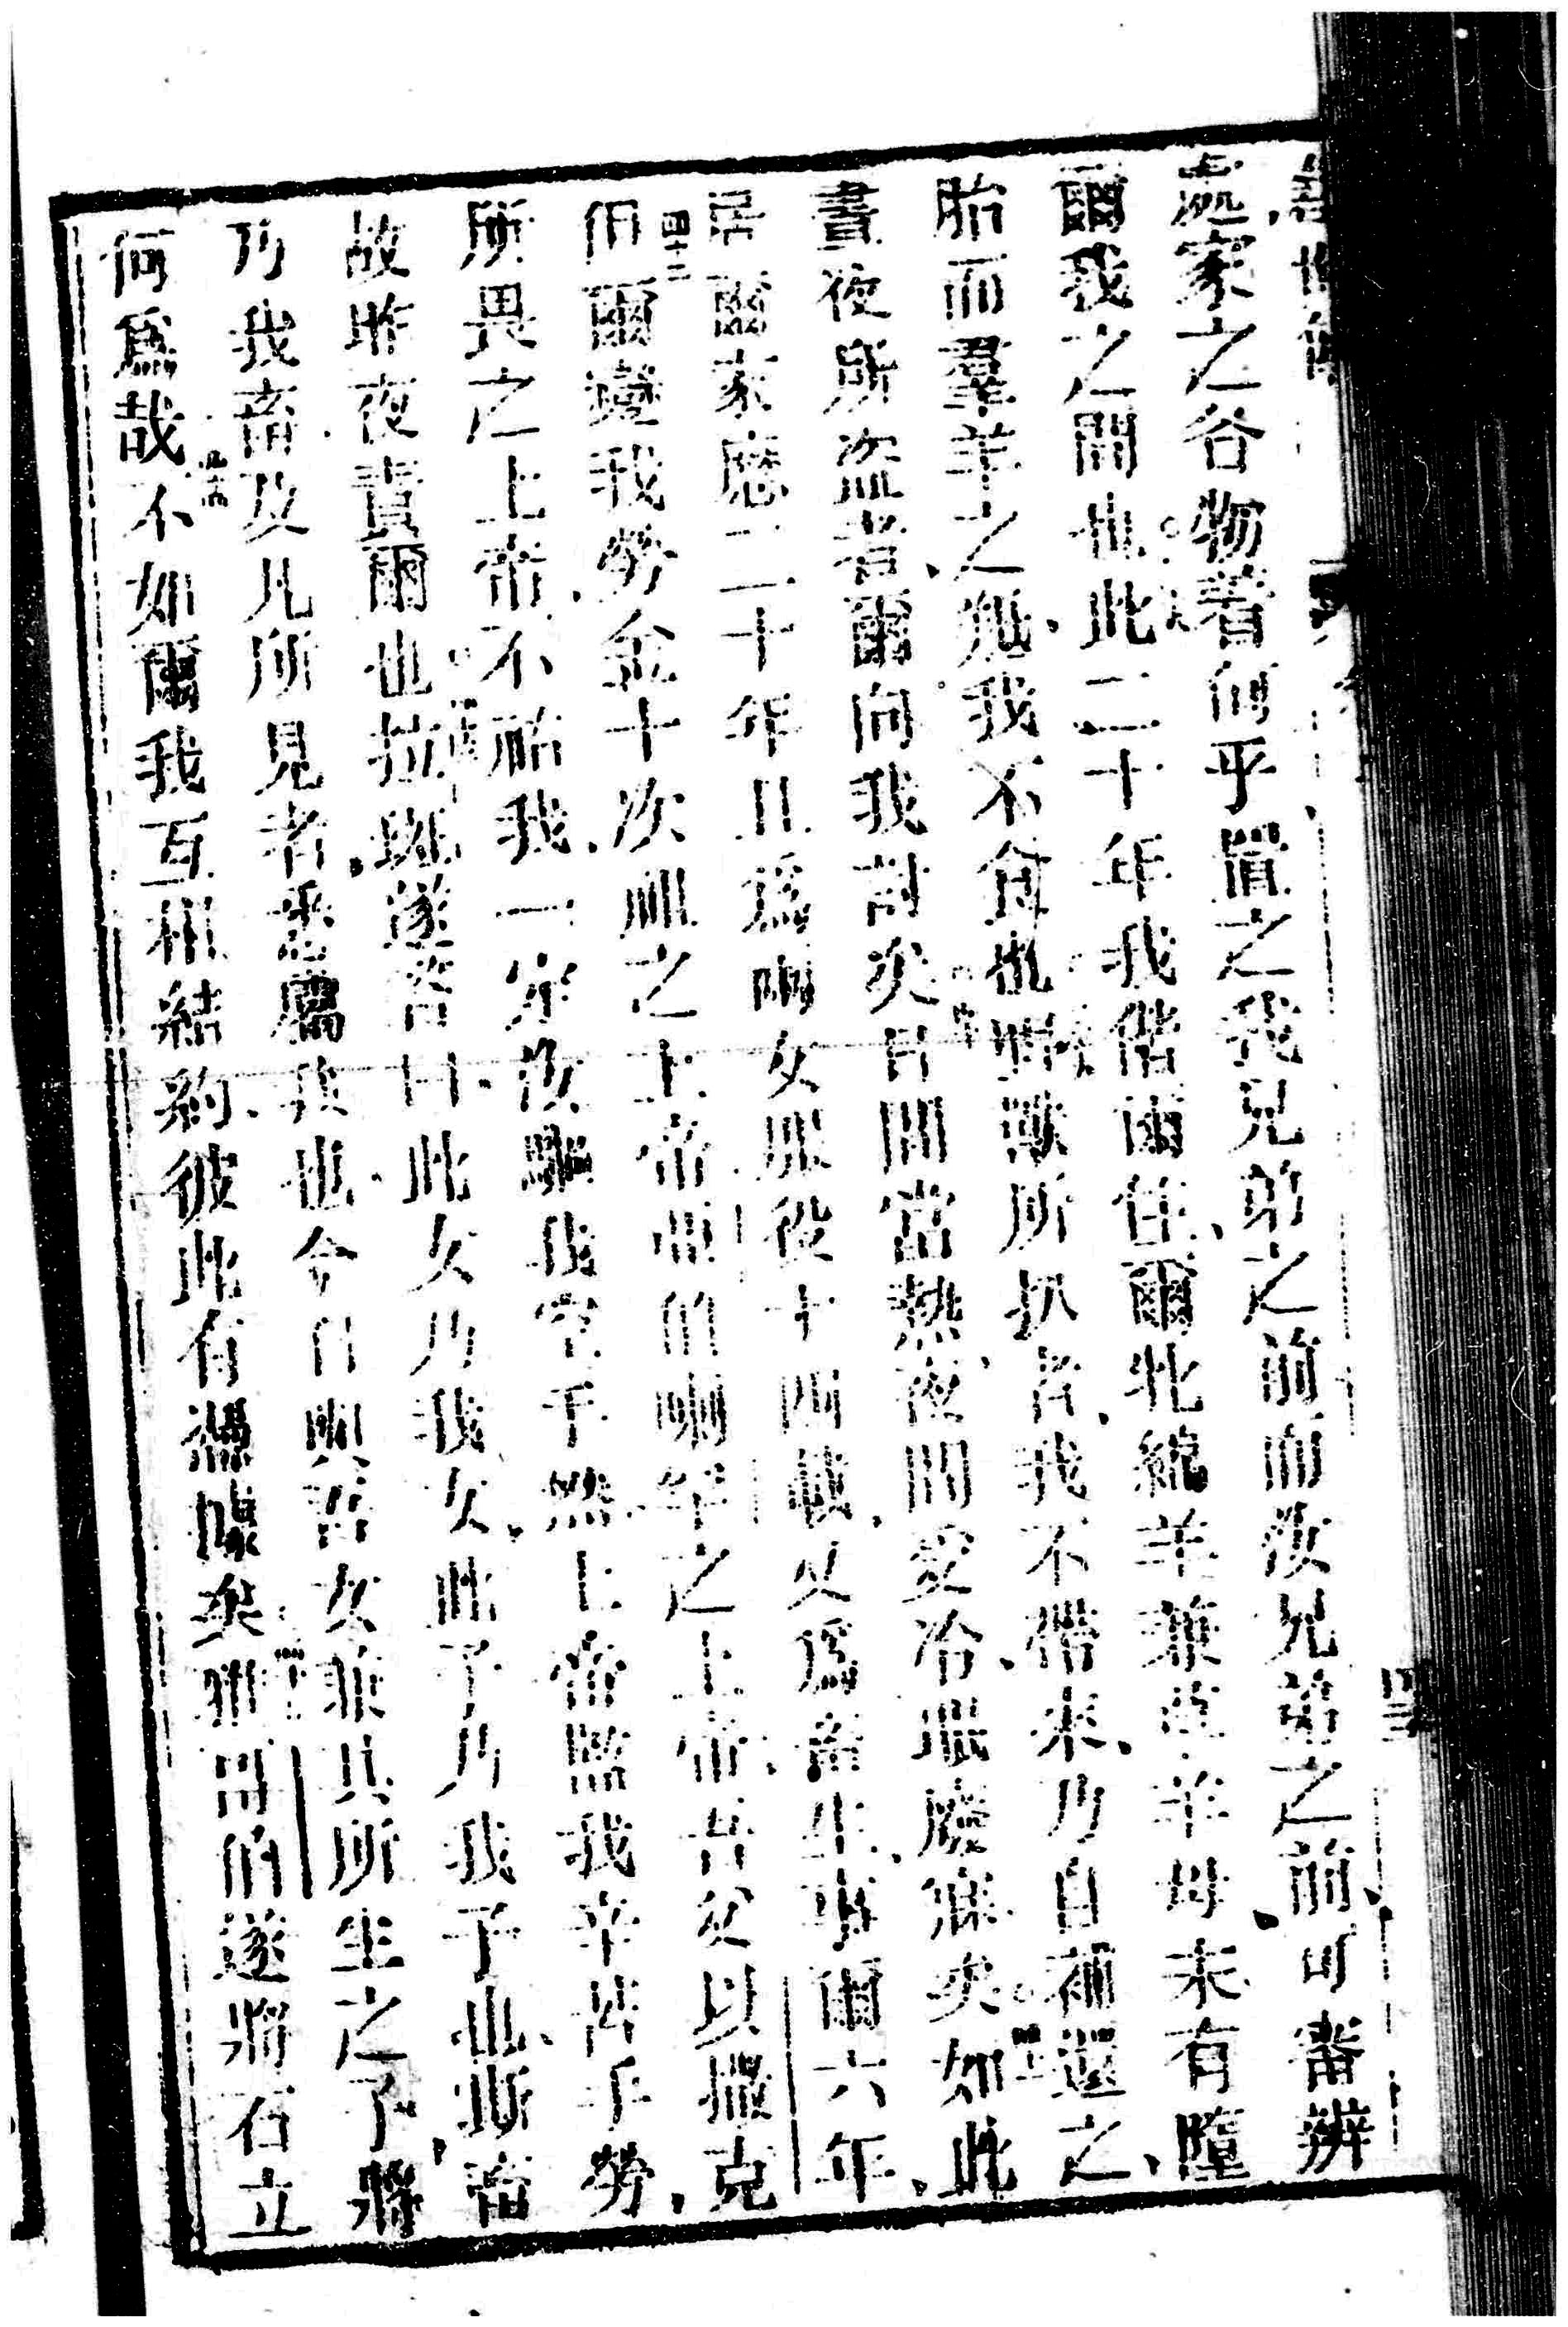 處家之各物著何乎置之我兄弟之前而汝兄弟之前、可審辨
爾我之間也此二十年我偕爾住、爾牝綿羊兼牝羊母未有隨
胎而羣羊之羝、我不食也野獸所扒者、我不帶來、乃自補還之、
晝夜所盜者、爾向我討矣日間當熱、夜間受冷、且廢寐矣如此
居爾家歷二十年且為兩女服役十四載、又為畜生、事爾六年、
四十二
但爾變我勞金十次、且之上帝、亞伯喇罕之上帝、吾父以撒克
所畏之上帝、不祐我、一定汝驅我空手、然上帝鑒我辛苦手勞、
故昨夜責爾也拉班遂答曰、此女乃我女、此子乃我子也、斯畜
乃我畜及凡所見者、悉屬我也、今日與吾女兼其所生之子、將
何為哉、不如爾我互相結約、彼此有憑據矣牙可伯遂將石立